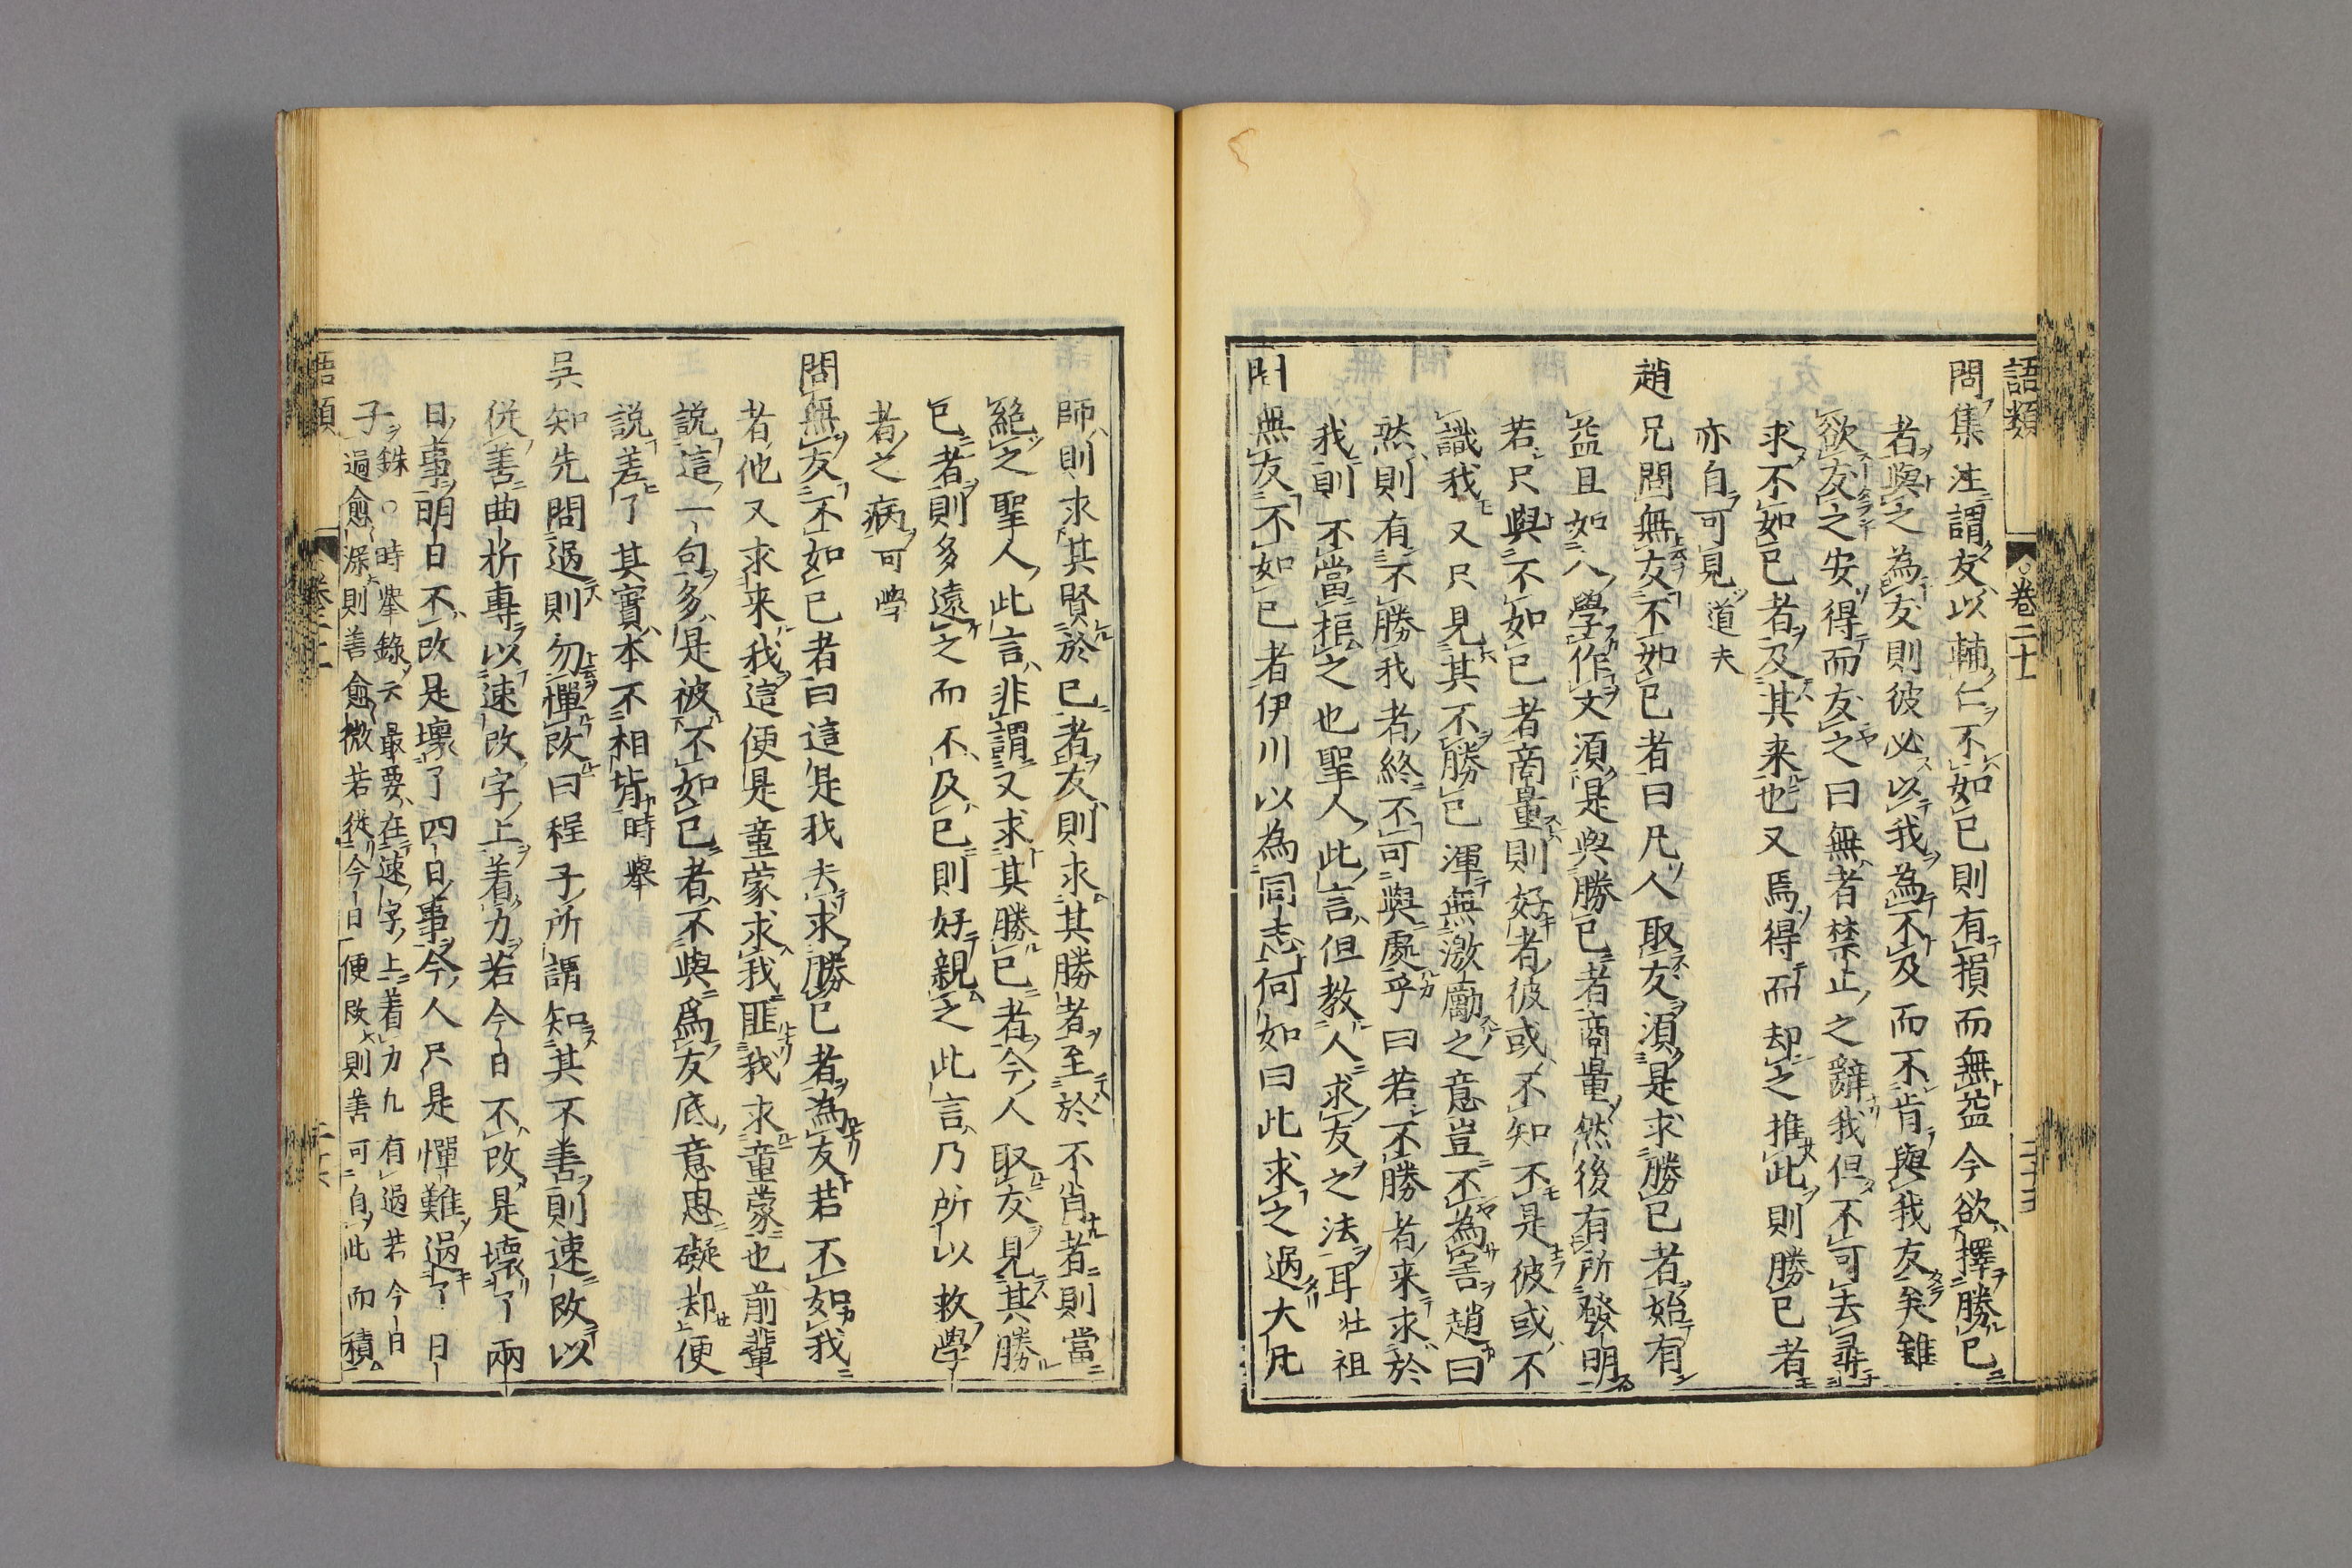 語類 卷二十一 二十五
問集注謂友以輔仁不如已則有損而無益今欲擇勝已
者與之為友則彼必以我為不及而不肯與我友矣雖
欲友之安得而友之曰無者禁止之辭我但不可去尋
求不如已者及其来也又焉得而却之推此則勝已者
亦自可見道夫
趙兄問無友不如已者曰凡人取友須是求勝已者始有
益且如人學作文須是與勝已者商量然後有所發明
若只與不如已者商量則好者彼或不知不是彼或不
識我又只見其不勝已渾無激勵之意豈不為害趙曰
然則有不勝我者終不可與處乎曰若不勝者来求於
我則不當拒之也聖人此言但教人求友之法耳壮祖
問無友不如已者伊川以為同志何如曰此求之過大凡
師則求其賢於已者友則求其勝者至於不肖者則當
絕之聖人此言非謂又求其勝已者今人取友見其勝
已者則多遠之而不及已則好親之此言乃所以救學
者之病可學
問無友不如已者曰這是我去求勝已者為友若不如我
者他又求来我這便是童蒙求我匪我求童蒙也前輩
說這一句多是被不如已者不與爲友底意思礙却便
說差了其實本不相背時舉
吳知先問過則勿憚改曰程子所謂知其不善則速改以
從善曲折專以速改字上着力若今日不改是壞了兩
日事明日不改是壞了四日事今人只是憚難過了日
子銖○時舉錄云最要在速字上着力凡有過若今日
過愈深則善愈微若從今日便改則善可自此而積
語類